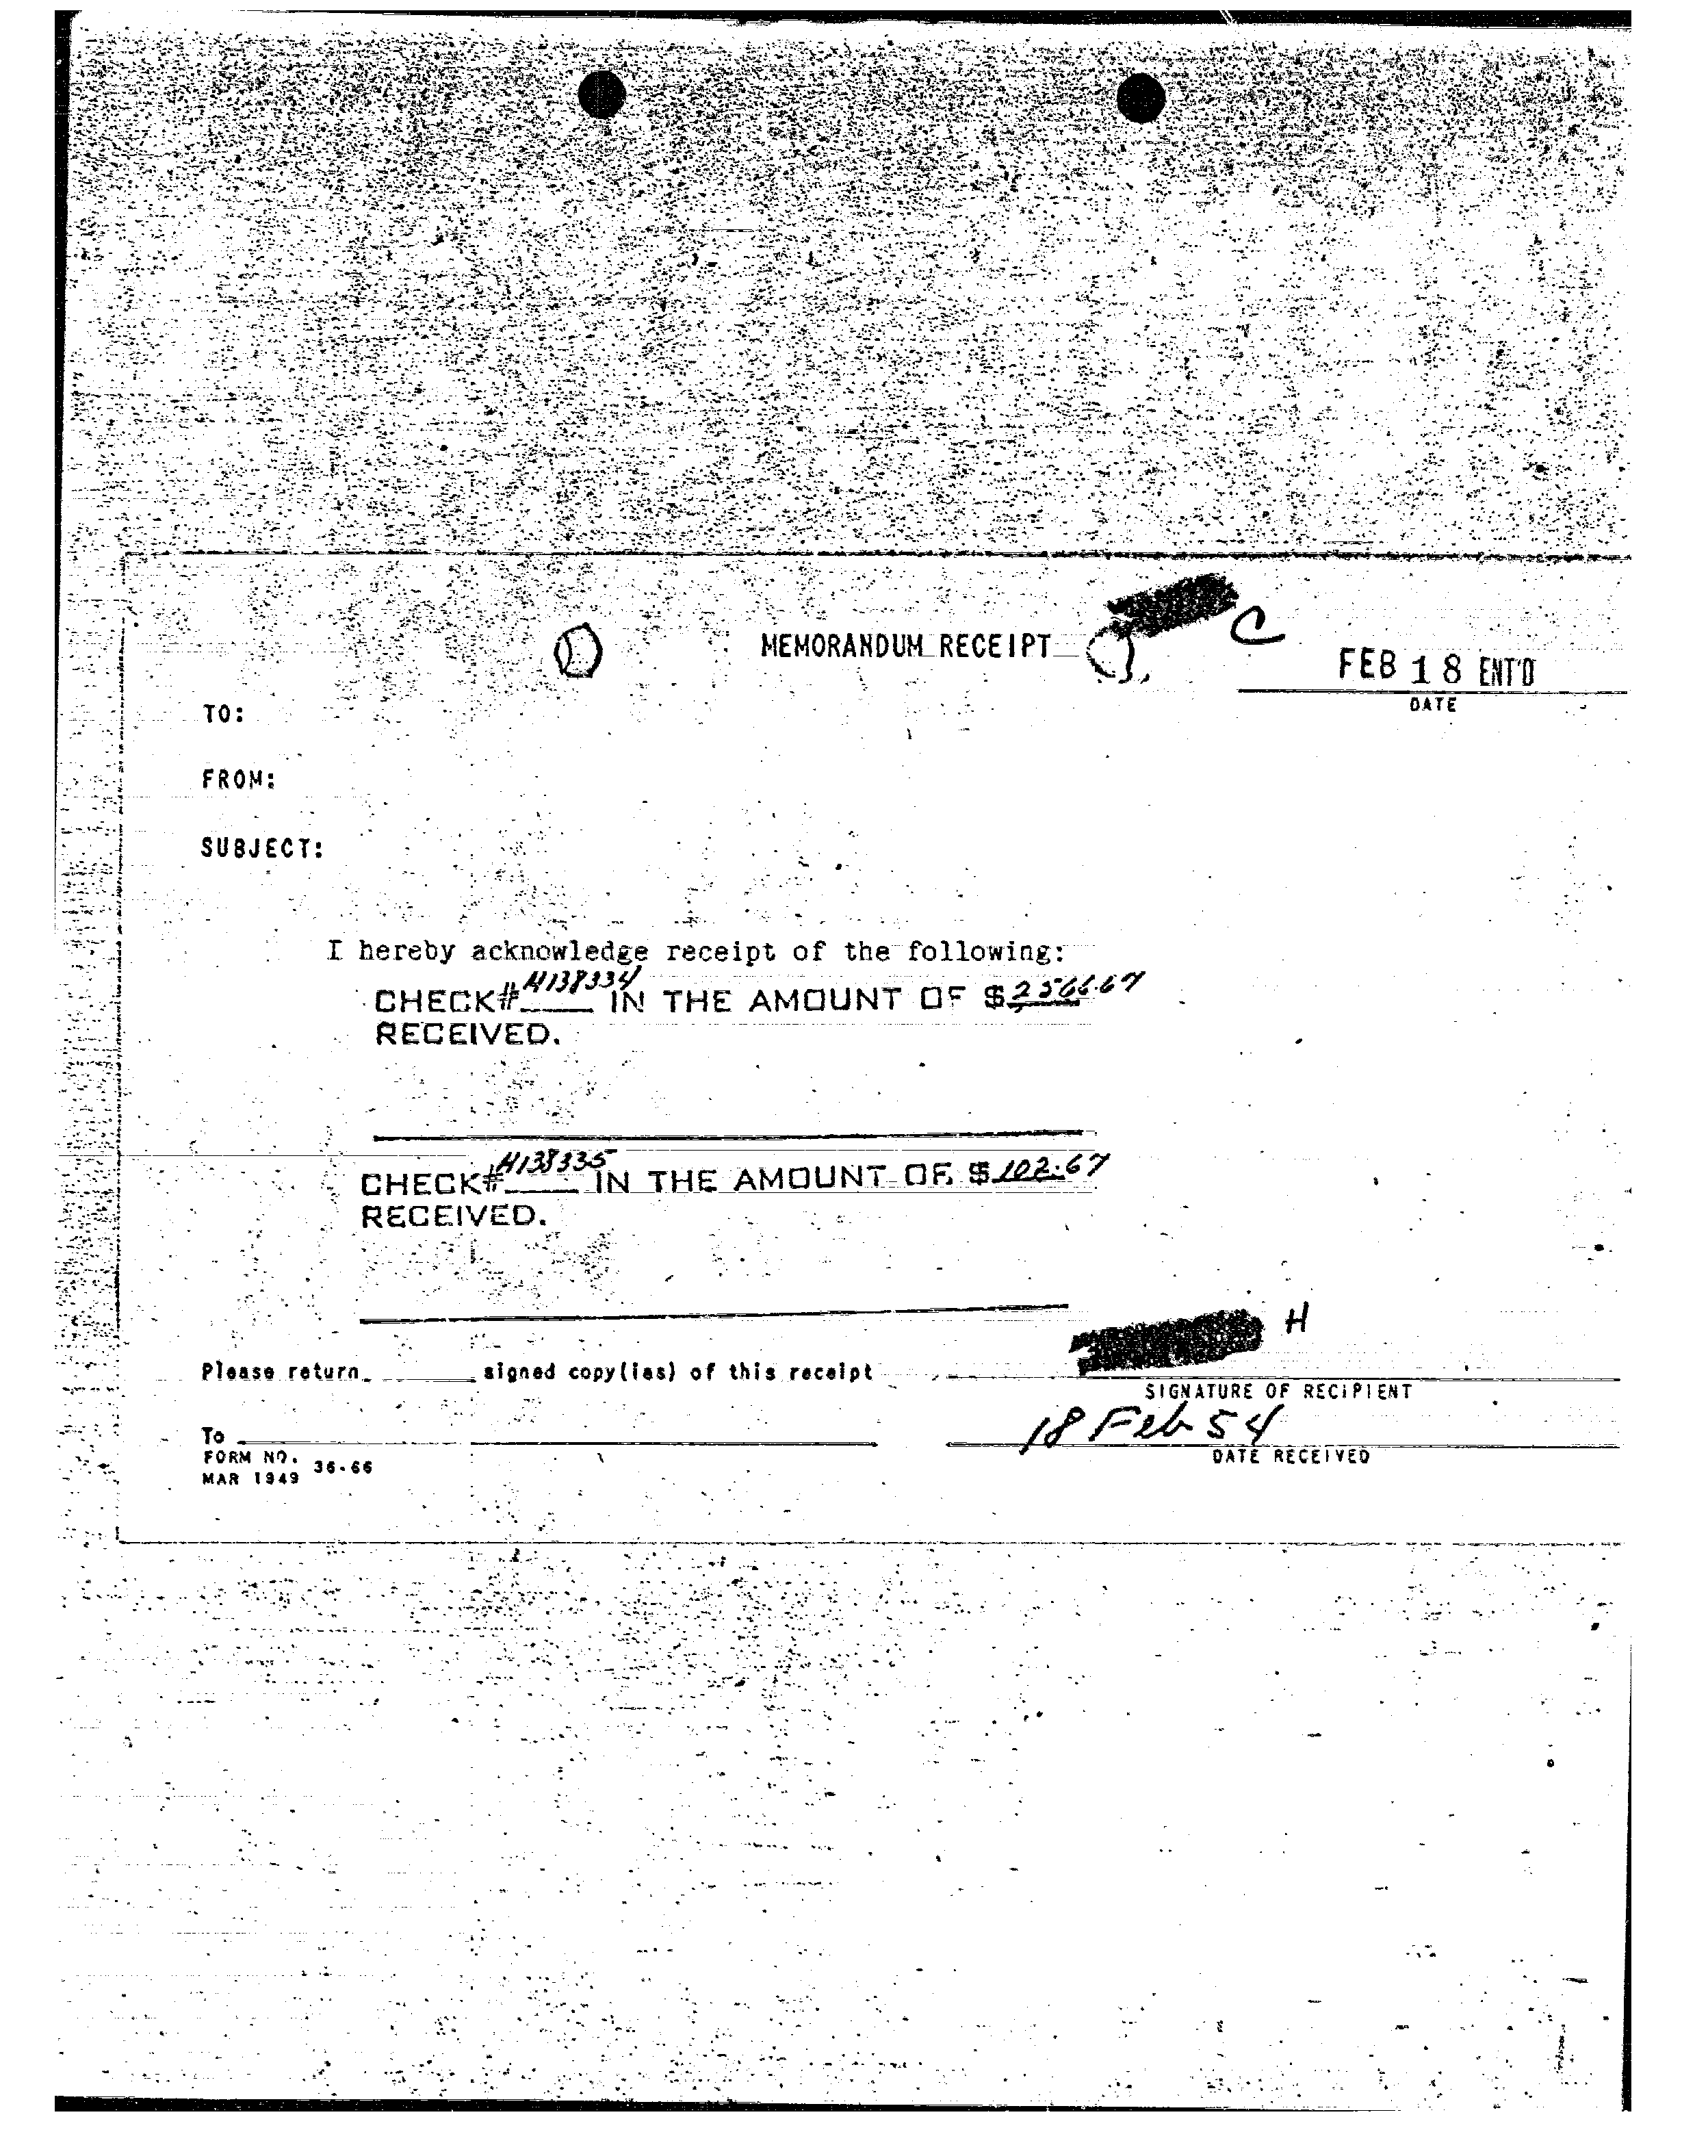 C
MEMORANDUM RECEIPT
FEB 18 ENT'D
DATE
TO:
FROM:
SUBJECT:
I hereby acknowledge receipt of the following:
CHECK# H138334 IN THE AMOUNT OF $2,566.67
RECEIVED.
CHECK# H138335 IN THE AMOUNT OF $102.67
RECEIVED.
H
Please return ____ signed copy(ies) of this receipt
SIGNATURE OF RECIPIENT
18 Feb 54
To
DATE RECEIVED
FORM NO. 36-66
MAR 1949